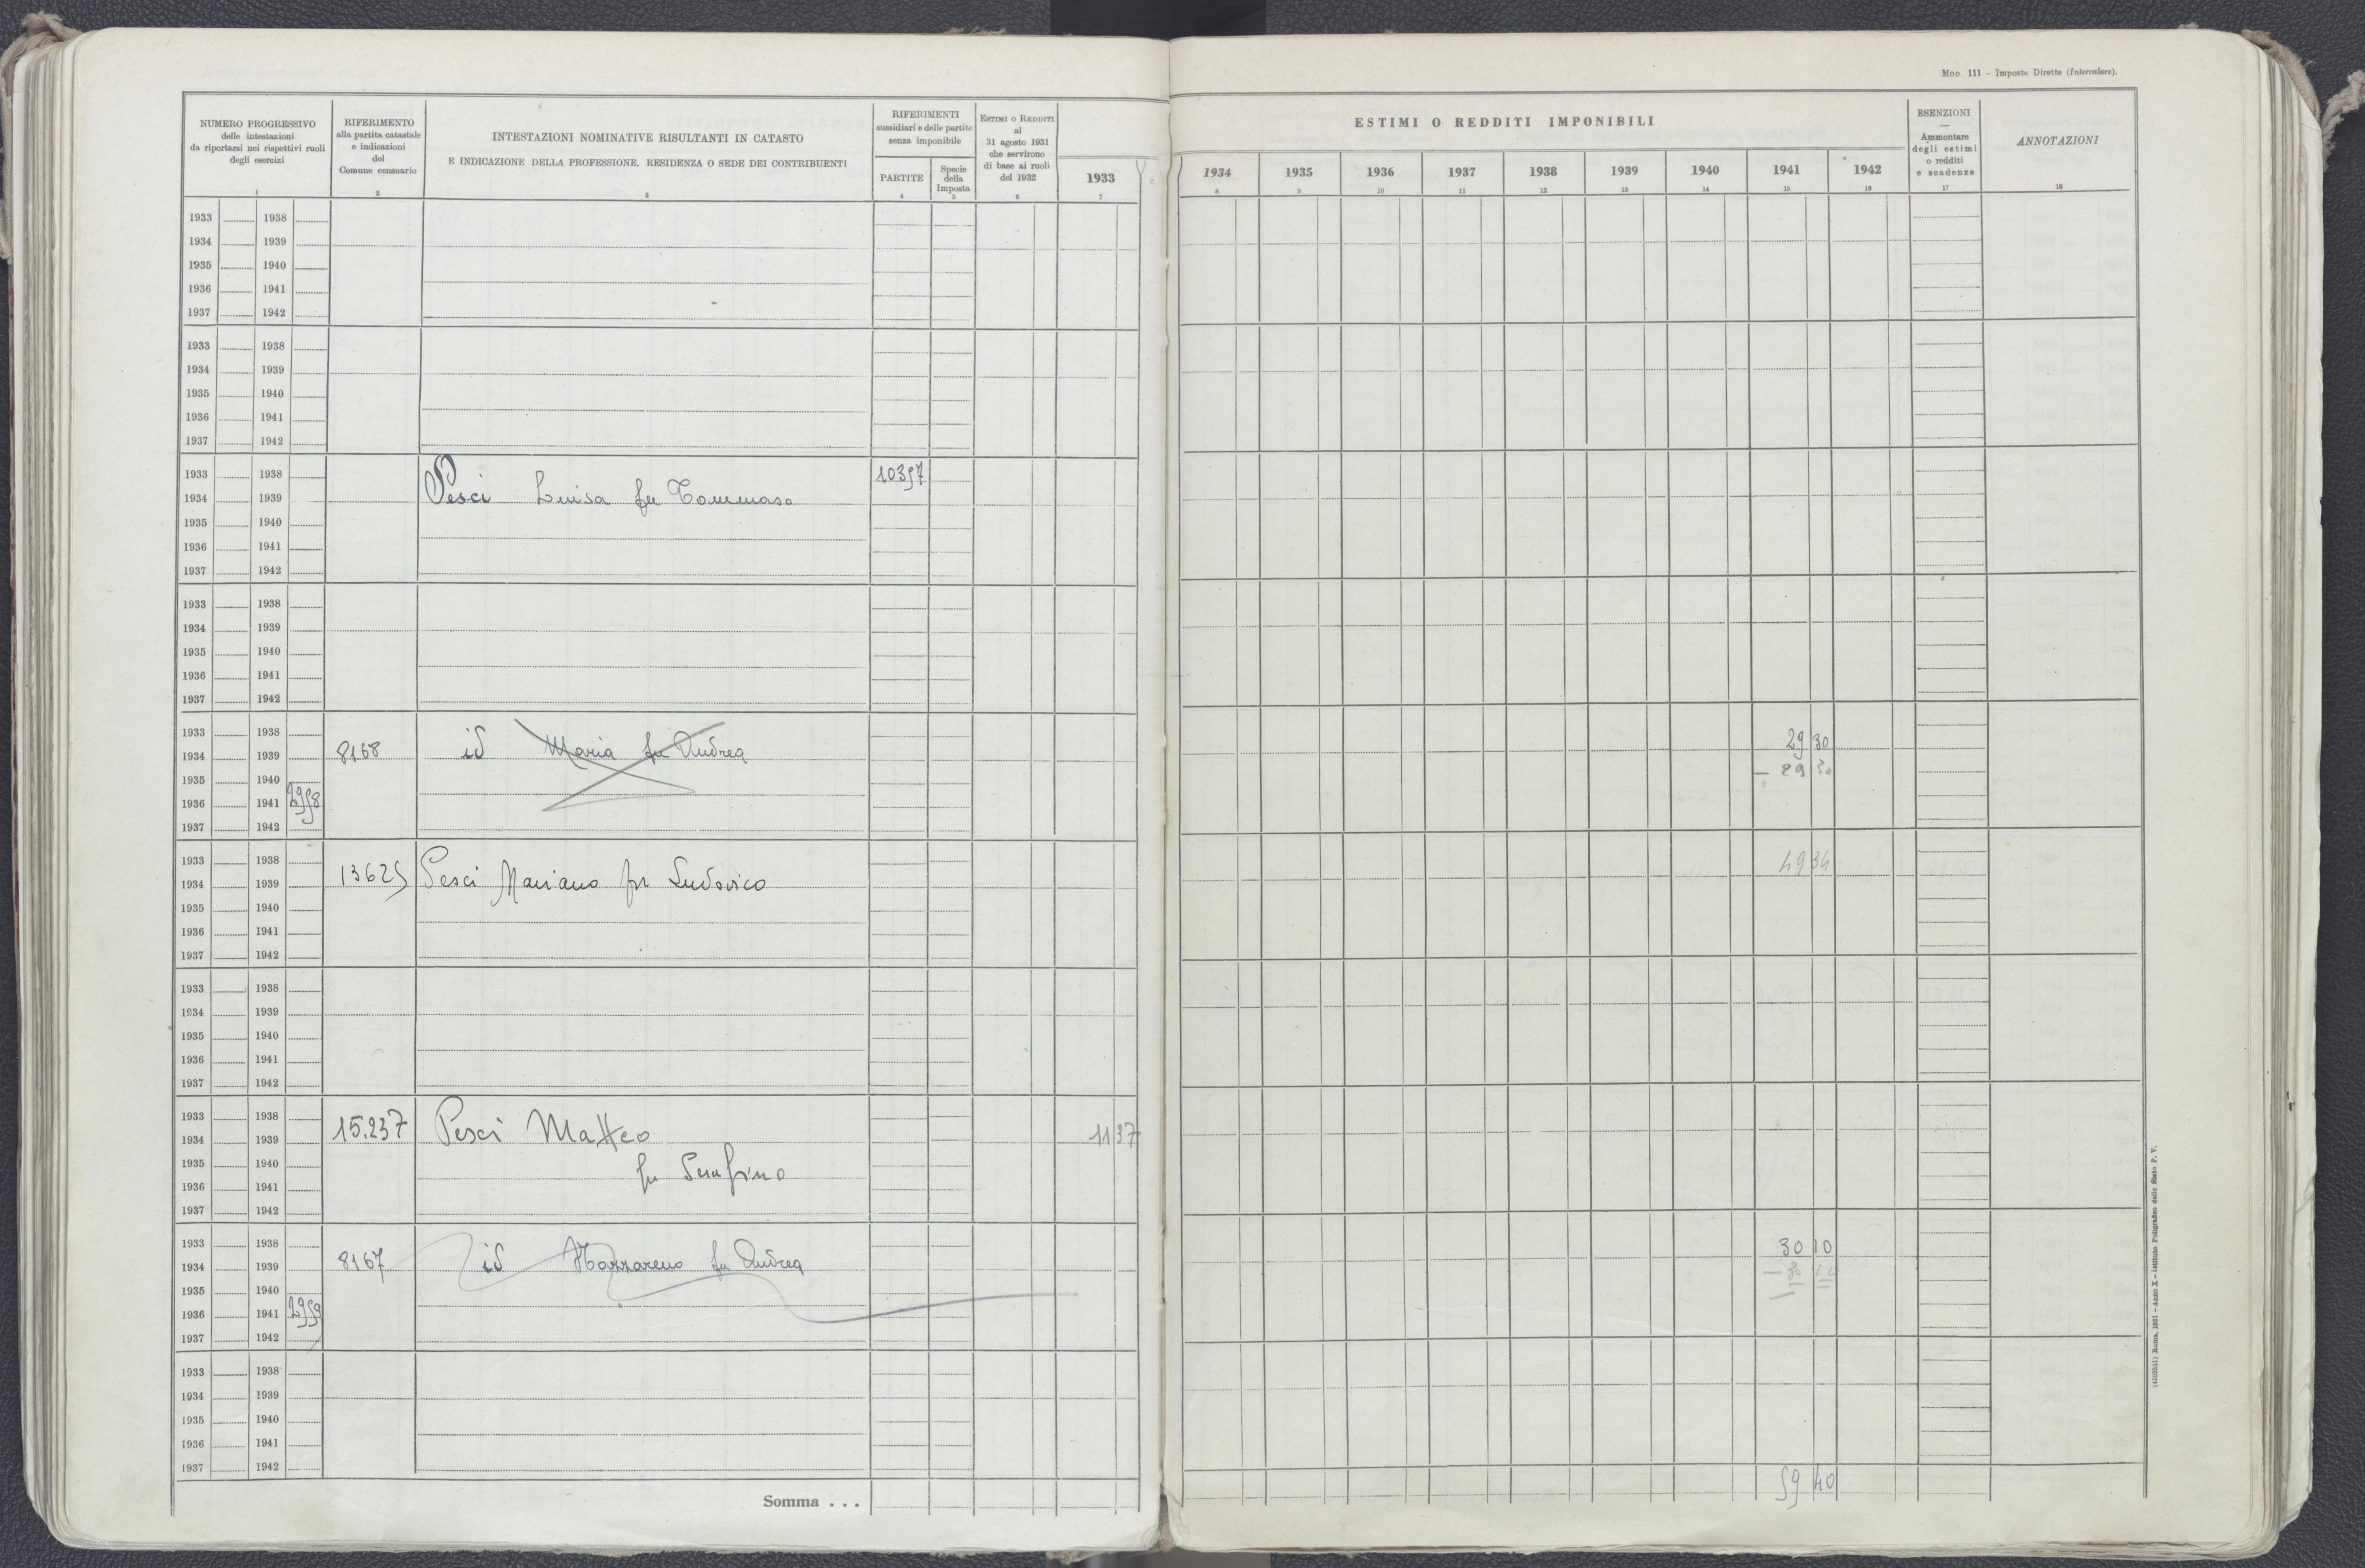 MOD. 111 - Imposte Dirette (Intercalare).
NUMERO PROGRESSIVO
delle intestazioni
da riportarsi nei rispettivi ruoli
degli esercizi
1
RIFERIMENTO
alla partita catastale
e indicazioni
del
Comune censuario
2
INTESTAZIONI NOMINATIVE RISULTANTI IN CATASTO
E INDICAZIONE DELLA PROFESSIONE, RESIDENZA O SEDE DEI CONTRIBUENTI
3
RIFERIMENTI
sussidiari e delle partite
senza imponibile
PARTITE
4
Specie
della
Imposta
5
ESTIMI O REDDITI
al
31 agosto 1931
che servirono
di base ai ruoli
del 1932
6
1933
7
ESTIMI O REDDITI IMPONIBILI
1934 1935 1936 1937 1938 1939 1940 1941 1942
8 9 10 11 12 13 14 15 16
ESENZIONI
—
Ammontare
degli estimi
o redditi
e scadenze
17
ANNOTAZIONI
18
1933 1938
1934 1939
1935 1940
1936 1941
1937 1942
1933 1938
1934 1939
1935 1940
1936 1941
1937 1942
1933 1938 10357
1934 1939 Pesci Luisa fu Tommaso
1935 1940
1936 1941
1937 1942
1933 1938
1934 1939
1935 1940
1936 1941
1937 1942
1933 1938 29 30
1934 1939 8168 id Maria fu Andrea
1935 1940 - 29 30
1936 1941 2958
1937 1942
1933 1938 49 34
1934 1939 13625 Pesci Mariano fu Ludovico
1935 1940
1936 1941
1937 1942
1933 1938
1934 1939
1935 1940
1936 1941
1937 1942
1933 1938
1934 1939 15.237 Pesci Matteo 11 37
1935 1940 fu Serafino
1936 1941
1937 1942
1933 1938 30 10
1934 1939 8167 id Nazzareno fu Andrea
1935 1940 - 30 10
1936 1941 2959
1937 1942
1933 1938
1934 1939
1935 1940
1936 1941
1937 1942
Somma . . . 59 40
Roma, 1931 - Anno X - Istituto Poligrafico dello Stato P. V.